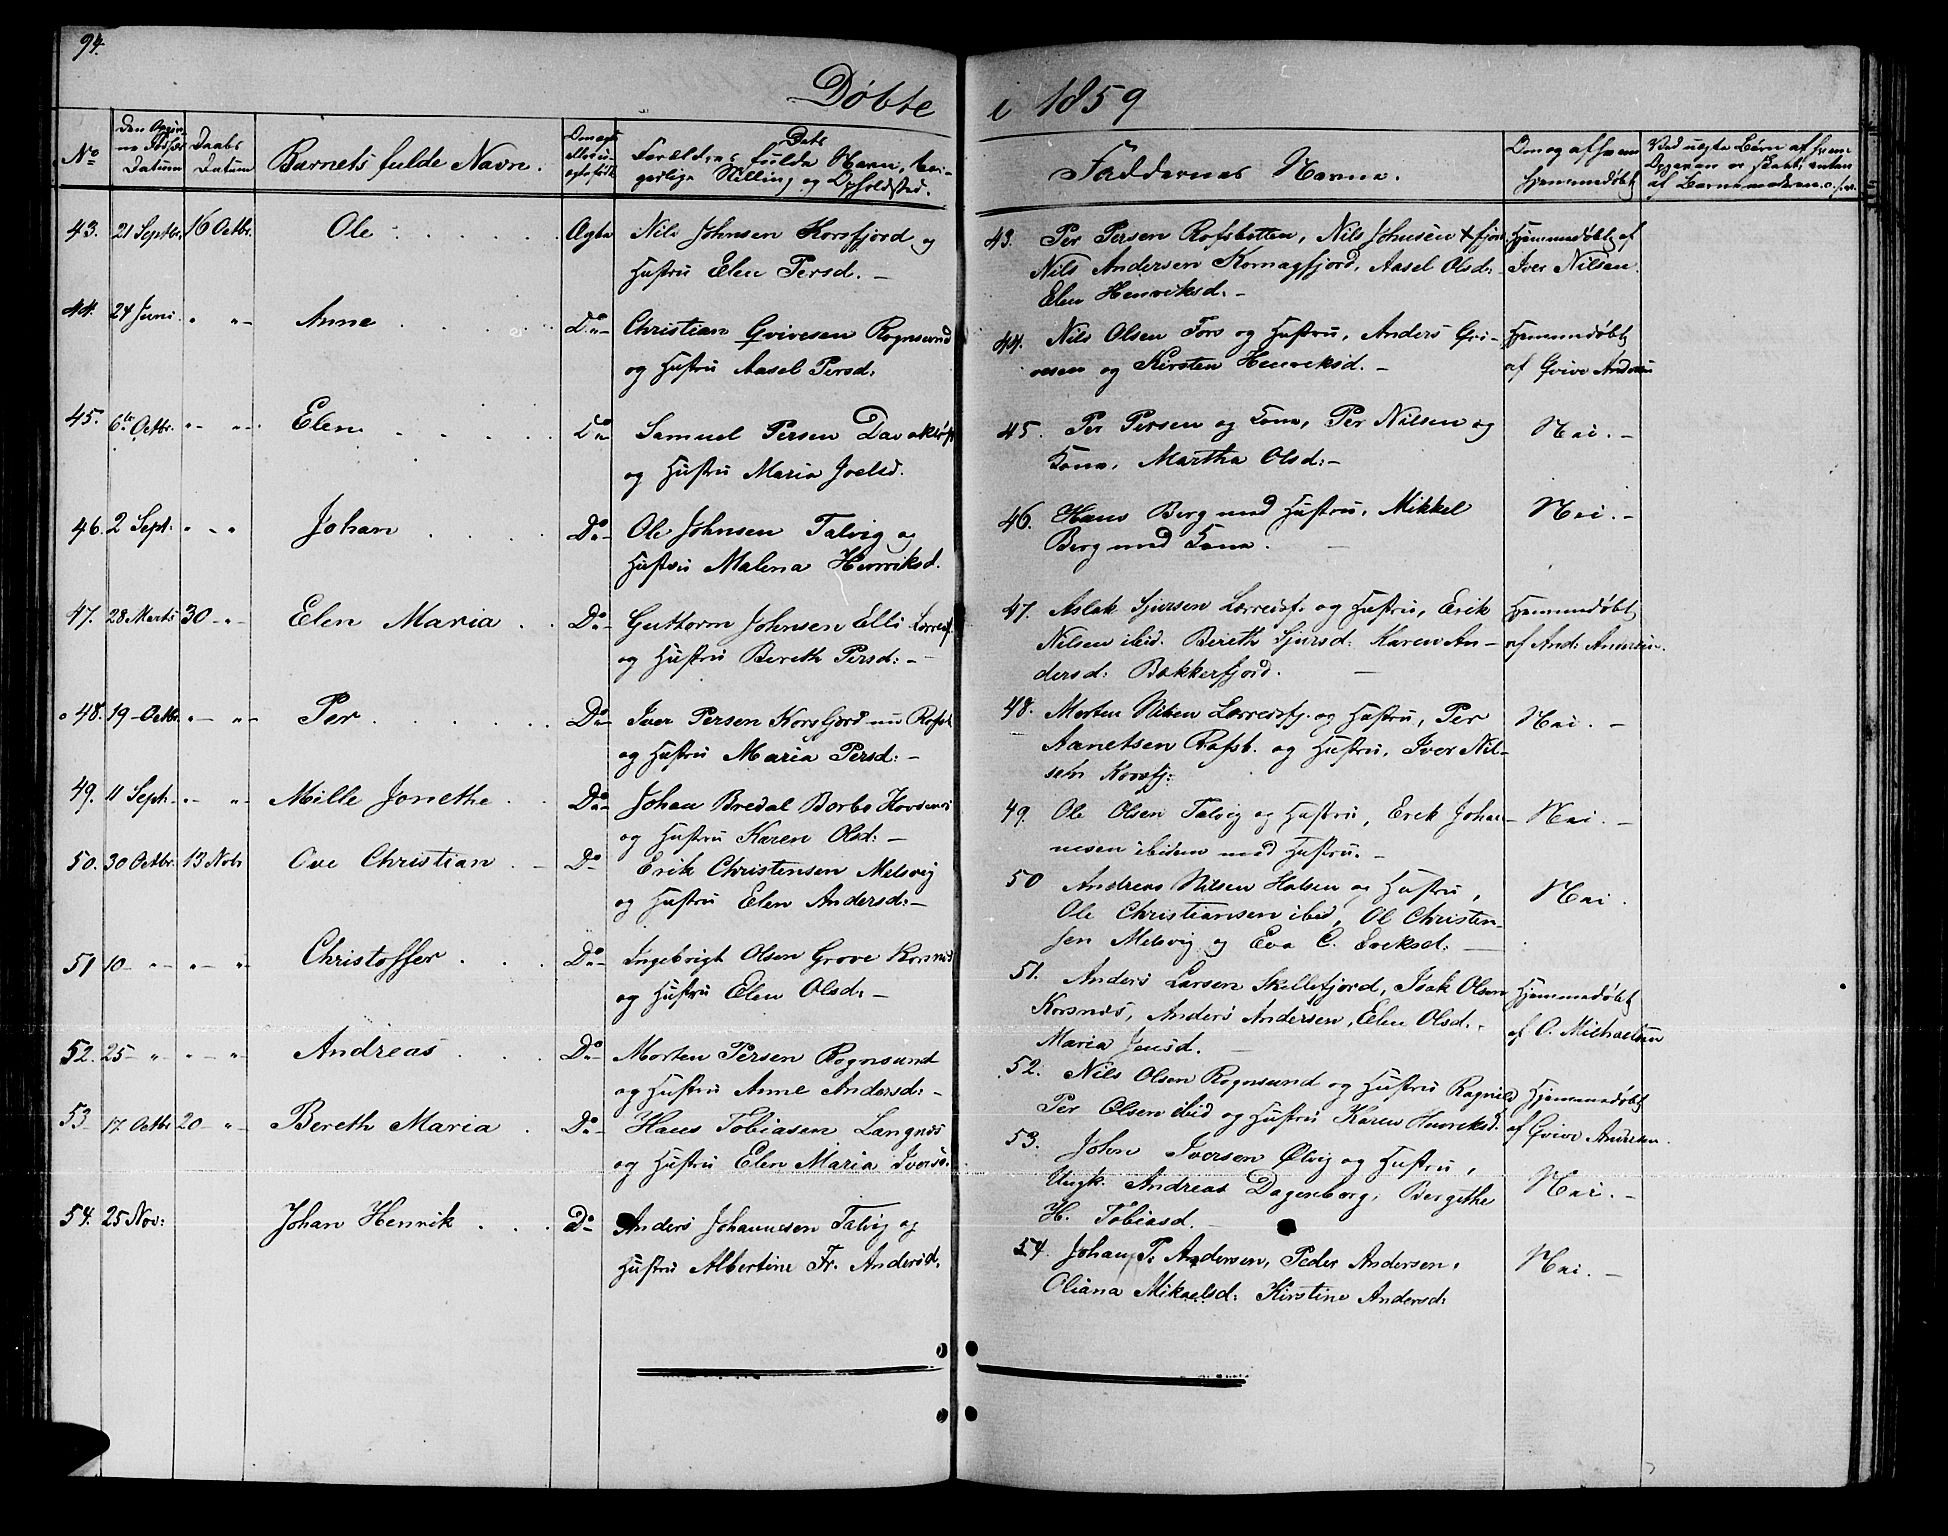 94.
Døbte i 1859
No
Datum
Daabs Datum
Barnets fulde Navn.
Forældres fulde Navn, og Opholdsted.
Faddernes Navne.
Om og af hvem hjemmedøbt
43. 21 Septbr. 16 Octbr. Ole Ægte Nils Johnsen Korsfjord og
Hustru Elen Persd. -
44. 24 Juni " " - Anne Do - Christian Gvivesen Rognsund
og Hustru Aasel Persd:
45. 6te Octbr. " - " - Elen Do Samuel Persen
og Hustru Maria Joelsd.
46. 2 Sept: " - " Johan Do - Ole Johnsen Talvig og
Hustru Malena Henriksd.
47. 28 Marts 30 - " - Elen Maria Do - Guttorm Johnsen Elli
og Hustru Bereth Persd: -
48. 19 - Octbr. " - " - Per Do - Iver Persen Korsfjord nu Rafsb
og Hustru Maria Persd: -
49. 11 Sept. - " - " - Mille Jonethe Do - Johan Bredal Borbo
og Hustru Karen Olsd: -
50. 30 Octbr. 13 Nobr Ove Christian Do - Erik Christensen Melsvig
og Hustru Elen Andersd: -
51 10 - " - " - " Christoffer Do - Ingebrigt Olsen Grove Korsnæs
og Hustru Elen Olsd: -
52. 25 - " " - " Andreas Do - Morten Persen Rognsund
og Hustru Anne Andersd: -
53 17. Octbr 20 - " - Bereth Maria Do - Hans Tobiasen Langnæs
og Hustru Elen Maria Iversd.
54. 25 Nov: Johan Henrik Do - Anders Johannesen Talvig og
Hustru Albertine Fr. Andersd.
43. Per Persen Rafsbotten, Nils Johnsen Hjemmedøbt af
Nils Andersen Komagfjord, Aasel Olsd. Iver Nilsen.
Elen Henriksd. -
44. Nils Olsen Fors og Hustru, Anders Gvi- Hjemmedøbt
vesen og Kirsten Henriksd. - af Gvive Andersen
45. Per Persen og Kone, Per Nilsen og Nei. -
Kone, Martha Olsd: -
46. Hans Berg med Hustru, Mikkel Nei. -
Berg med Kone. -
47. Aslak Sjursen Lerresf. og Hustru, Erik Hjemmedøbt
Nilsen ibid. Bereth Sjursd. Karen An- af And: Andersen.
dersd: Bakkerfjord. -
48. Morten Nilsen Lerresfj. og Hustru, Per Nei. -
Aanetsen Rafsb. og Hustru, Iver Nil-
sen Korsfj:
49. Ole Olsen Talvig og Hustru, Erik Johan- Nei. -
nesen ibidem med Hustru. -
50 Andreas Nilsen Halsen og Hustru, Nei.
Ole Christiansen ibid, Ol Christen-
sen Melsvig og Eva C. Eriksd: -
51. Anders Larsen Skillefjord, Isak Olsen Hjemmedøbt
Korsnæs, Anders Andersen, Elen Olsd. af O. Michaelsen
Maria Jensd. -
52. Nils Olsen Rognsund og Hustru Ragnild Hjemmedøbt
Per Olsen ibid og Hustru Karen Henriksd. af Gvive Andersen.
53. John Iversen Ølvig og Hustru,
Ungk. Andreas Dagenborg, Bergithe Nei. -
H. Tobiasd. -
54. Johan P. Andersen, Peder Andersen, Nei. -
Oliana Mikaelsd: Kirstine Andersd: